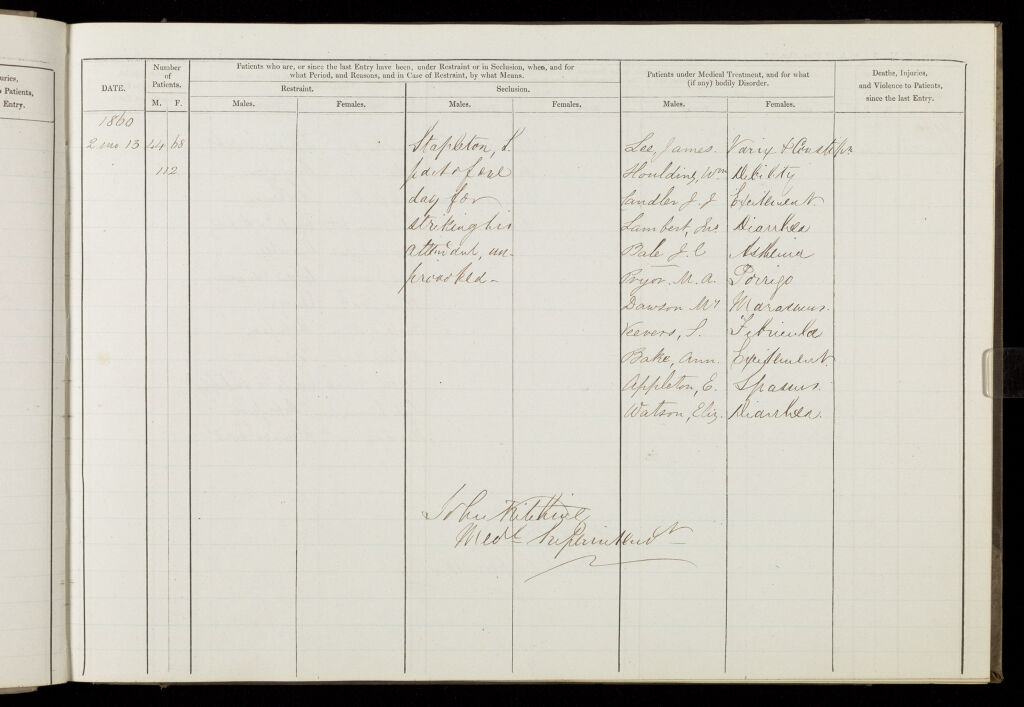 uries,
o Patients,
Entry.
DATE.
Number
of
Patients.
M. F.
Patients who are, or since the last Entry have been, under Restraint or in Seclusion, when, and for
what Period, and Reasons, and in Case of Restraint, by what Means.
Restraint.
Seclusion.
Males.
Females.
Males.
Females.
Patients under Medical Treatment, and for what
(if any) bodily Disorder.
Males.
Females.
Deaths, Injuries,
and Violence to Patients,
since the last Entry.
1860
2 mo 13 44 68
112
Stapleton,
part of one
day for
striking his
attendant, un-
provoked -
Lee, James. Varix &
Houlding, Wm Debility
Sandler J. J Excitement
Lambert, Jno Diarrhea
Bale J. C Asthenia
Pryor. M. A. Porrigo
Dawson My Marasmus.
Veevers, S. Febricula
Bake, Ann. Excitement
Appleton, E. Spasms.
Watson, Eliz. Diarrhea.
John Kitching
Medl Superintendt